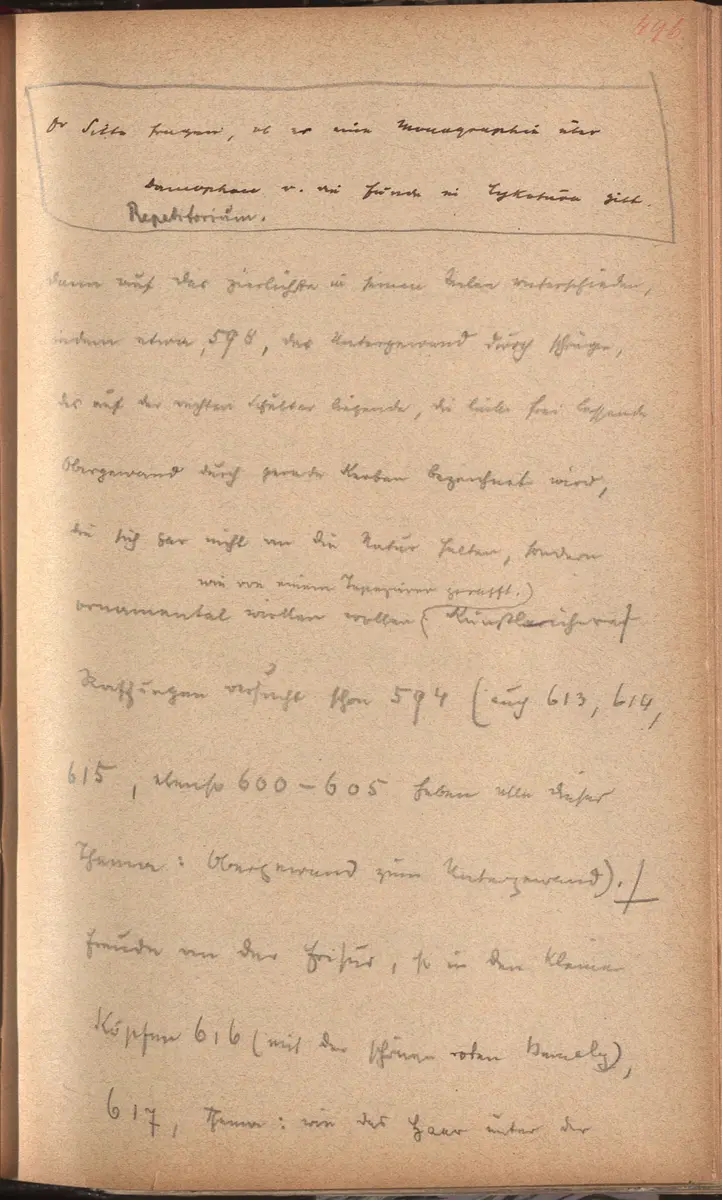 496.
Dr Sitte fragen, ob es eine Monographie über
Damophon u. die Funde in Lykosura gibt.
Repetitorium.
dann auf das zierlichste in seinen Teilen unterschieden,
indem etwa, 598, das Untergewand durch schräge,
das auf der rechten Schulter liegende, die linke frei lassende
Obergewand durch gerade Kerben bezeichnet wird,
die sich gar nicht an die Natur halten, sondern
wie von einem Tapezierer gerafft.)
ornamental wirken wollen (Künstlerische
Raffungen versucht schon 594 (auch 613, 614,
615, ebenso 600–605 haben alle dieses
Thema: Obergewand zum Untergewand).
Freude an der Frisur, so in den kleinen
Köpfen 616 (mit der schönen roten),
617, Thema: wie das Haar unter der